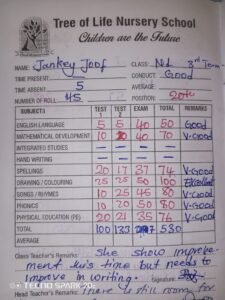 Tree of Life Nursery School
Children are the Future
NAME: Jankey Joof CLASS: N1 3rd Term
TIME PRESENT: CONDUCT: Good
TIME ABSENT: 5 AVERAGE:
NUMBER OF ROLL 45 POSITION: 20th
SUBJECTS TEST 1 TEST 2 EXAM TOTAL REMARKS
ENGLISH LANGUAGE 5 5 40 50 Good
MATHEMATICAL DEVELOPMENT 10 20 40 70 V-Good
INTEGRATED STUDIES
HAND WRITING
SPELLINGS 20 17 37 74 V-Good
DRAWING / COLOURING 25 25 50 100 Excellent
SONGS / RHYMES 10 25 45 80 V-Good
PHONICS 10 20 50 80 V-Good
PHYSICAL EDUCATION (PE) 20 21 35 76 V-Good
TOTAL 100 133 297 530
AVERAGE
Class Teacher's Remarks: She show improve-
ment this time but needs to
improve in writing. Signature:
Head Teacher's Remarks: There is still room for
TECNO SPARK 20C